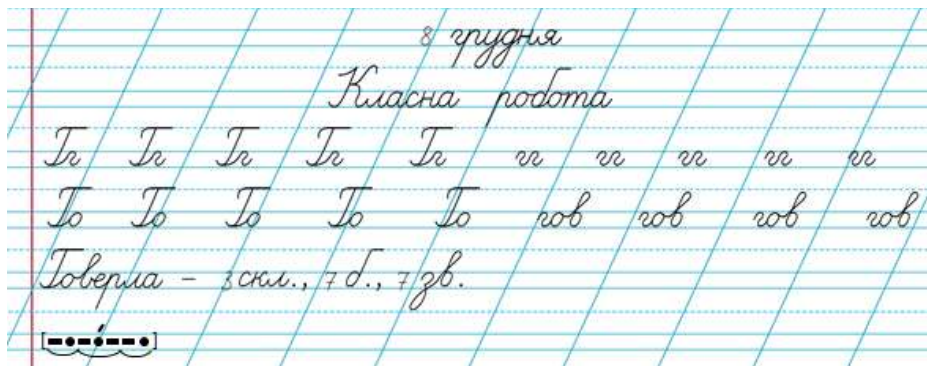 8 грудня
Класна робота
Гг Гг Гг Гг Гг гг гг гг гг гг
Го Го Го Го Го гов гов гов гов
Говерла – 3 скл., 7 б., 7 зв.
[–•–•––•]